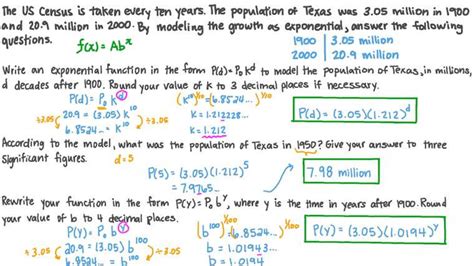 The US Census is taken every ten years. The population of Texas was 3.05 million in 1900
and 20.9 million in 2000. By modeling the growth as exponential, answer the following
questions. f(x)=Abˣ
1900 | 3.05 million
2000 | 20.9 million
Write an exponential function in the form P(d)=P₀kᵈ to model the population of Texas, in millions,
d decades after 1900. Round your value of k to 3 decimal places if necessary.
P(d)=P₀Kᵈ (k¹⁰)^(1/10)=(6.8524...)^(1/10)
÷3.05 20.9=(3.05)k¹⁰ ÷3.05 k=1.212228...
6.8524...=k¹⁰ k=1.212
P(d)=(3.05)(1.212)ᵈ
According to the model, what was the population of Texas in 1950? Give your answer to three
significant figures. d=5
P(5)=(3.05)(1.212)⁵
=7.9765...
7.98 million
Rewrite your function in the form P(y)=P₀bʸ, where y is the time in years after 1900. Round
your value of b to 4 decimal places.
P(y)=P₀bʸ (b¹⁰⁰)^(1/100)=(6.8524...)^(1/100)
÷3.05 20.9=(3.05)b¹⁰⁰ ÷3.05 b=1.01943...
6.8524...=b¹⁰⁰ b=1.0194
P(y)=(3.05)(1.0194)ʸ